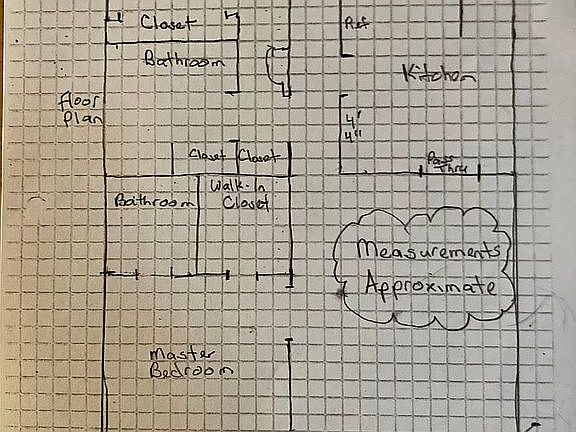 Closet
Ref
Bathroom
Kitchen
Floor
Plan
4'
4"
Closet
Closet
Pass
Thru
Walk-In
Closet
Bathroom
Measurements
Approximate
Master
Bedroom